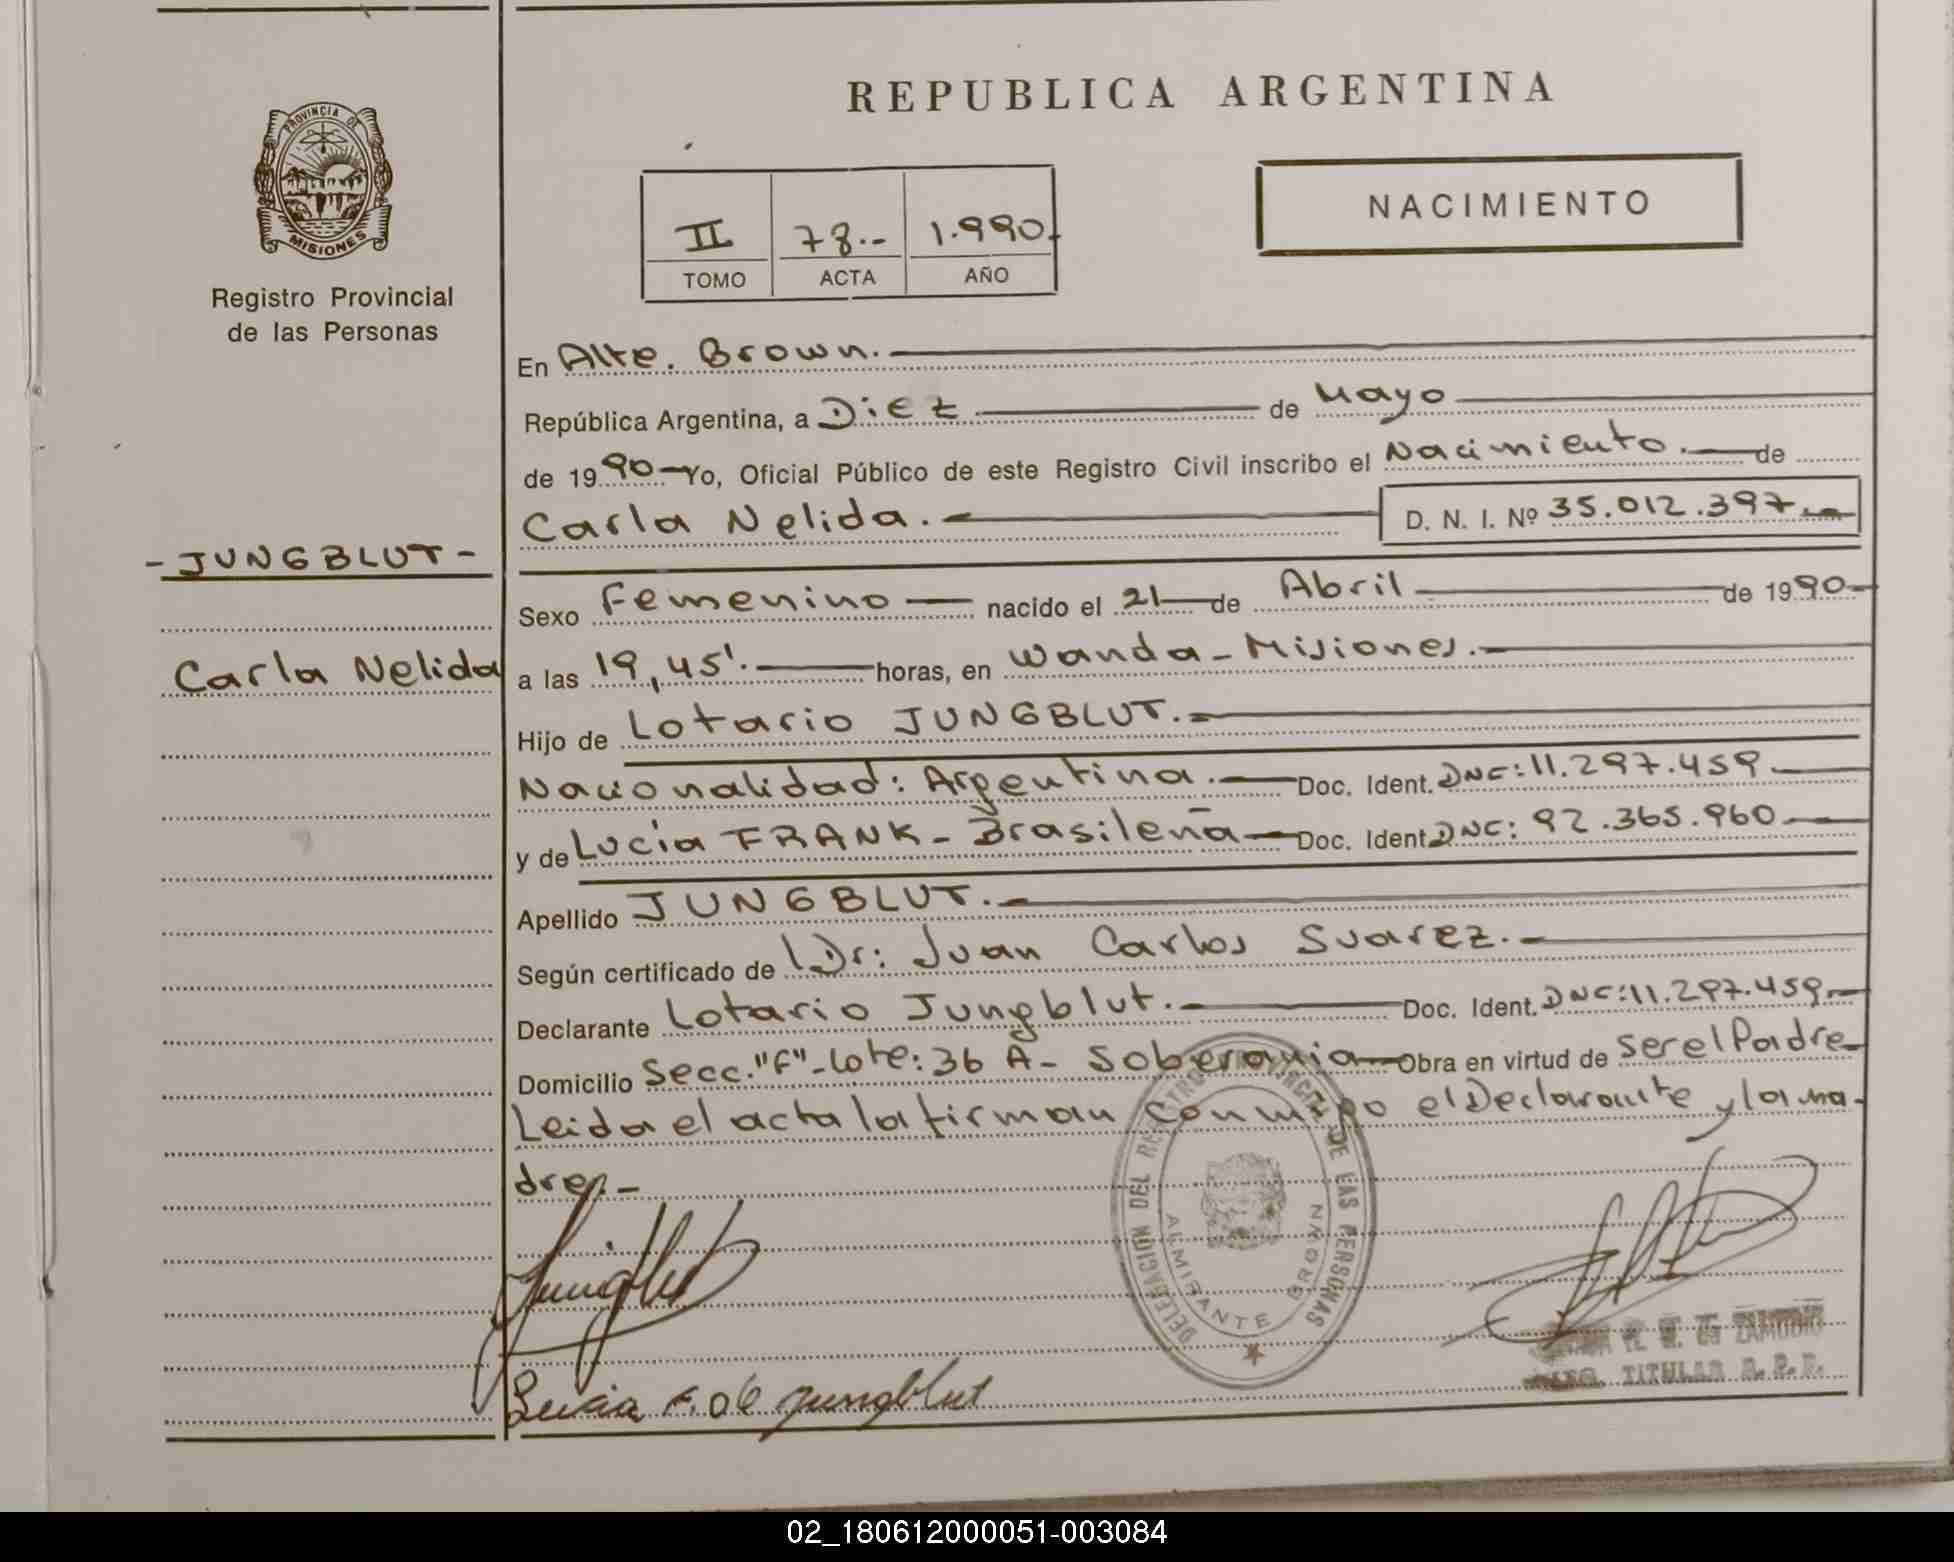 REPUBLICA ARGENTINA
PROVINCIA DE
MISIONES
Registro Provincial
de las Personas
II 78.-- 1.990.
TOMO ACTA AÑO
NACIMIENTO
En Alte. Brown.
República Argentina, a Diez de Mayo
de 1990 Yo, Oficial Público de este Registro Civil inscribo el Nacimiento. de
Carla Nelida. D. N. I. Nº 35.012.397
- JUNGBLUT -
Sexo Femenino nacido el 21 de Abril de 1990
Carla Nelida
a las 19,45'. horas, en Wanda - Misiones.
Hijo de Lotario JUNGBLUT.
Nacionalidad: Argentina. Doc. Ident. DNI: 11.297.459
y de Lucia FRANK - Brasileña Doc. Ident DNI: 92.365.960
Apellido JUNGBLUT.
Según certificado de Dr: Juan Carlos Suarez.
Declarante Lotario Jungblut. Doc. Ident. DNI: 11.297.459
Domicilio Secc. "F" - Lote: 36 A - Soberania Obra en virtud de ser el Padre
Leida el acta la firman conmigo el Declarante y la ma-
dre.-
DELEGACION DEL REGISTRO PROVINCIAL DE LAS PERSONAS
ALMIRANTE BROWN
Jungblut
Lucia F. de Jungblut
DE ZAMUDIO
TITULAR R. P. P.
02_180612000051-003084